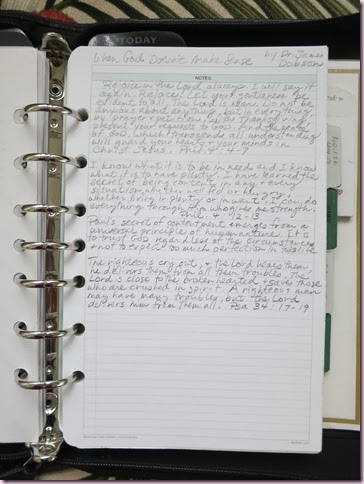 TODAY
When God Doesn't Make Sense by Dr. James
Dobson
NOTES
Rejoice in the Lord always. I will say it
again: Rejoice! Let your gentleness be
evident to all. The Lord is near. Do not be
anxious about anything, but in everything
by prayer + petition, with thanksgiving
present your requests to God. And the peace
of God, which transcends all understanding
will guard your hearts + your minds in
Christ Jesus. Phil. 4:4-7
I know what it is to be in need and I know
what it is to have plenty. I have learned the
secret of being content in any + every
situation, whether well fed or hungry,
whether living in plenty or in want. I can do
everything through Him who gives me strength.
Phil. 4:12-13
Paul's secret of contentment emerges from a
universal principle of human nature. It is
to trust God regardless of the circumstances
and to expect too much perfection in this life.
The righteous cry out, + the Lord hears them
he delivers them from all their troubles. The
Lord is close to the brokenhearted + saves those
who are crushed in spirit. A righteous man
may have many troubles, but the Lord
delivers him from them all. Psa 34:17-19